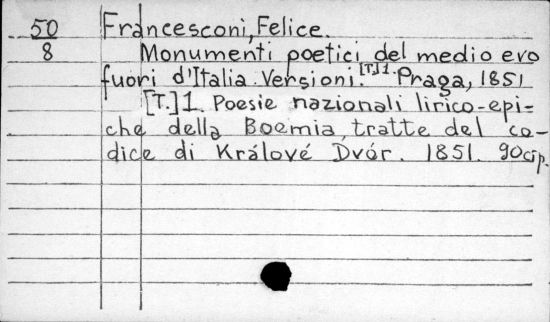 50
8
Francesconi, Felice.
Monumenti poetici del medio evo
fuori d'Italia. Versioni. [T.] 1. Praga, 1851
[T.] 1. Poesie nazionali lirico-epi=
che della Boemia, tratte del co-
dice di Králové Dvór. 1851. 90 čís.